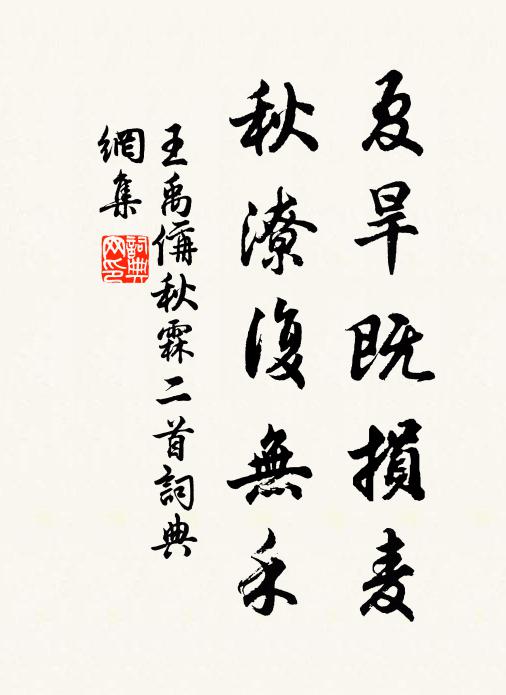 夏旱既損麦
秋潦復無禾
王禹偁秋霖二首詞典
網集
詞典
网印